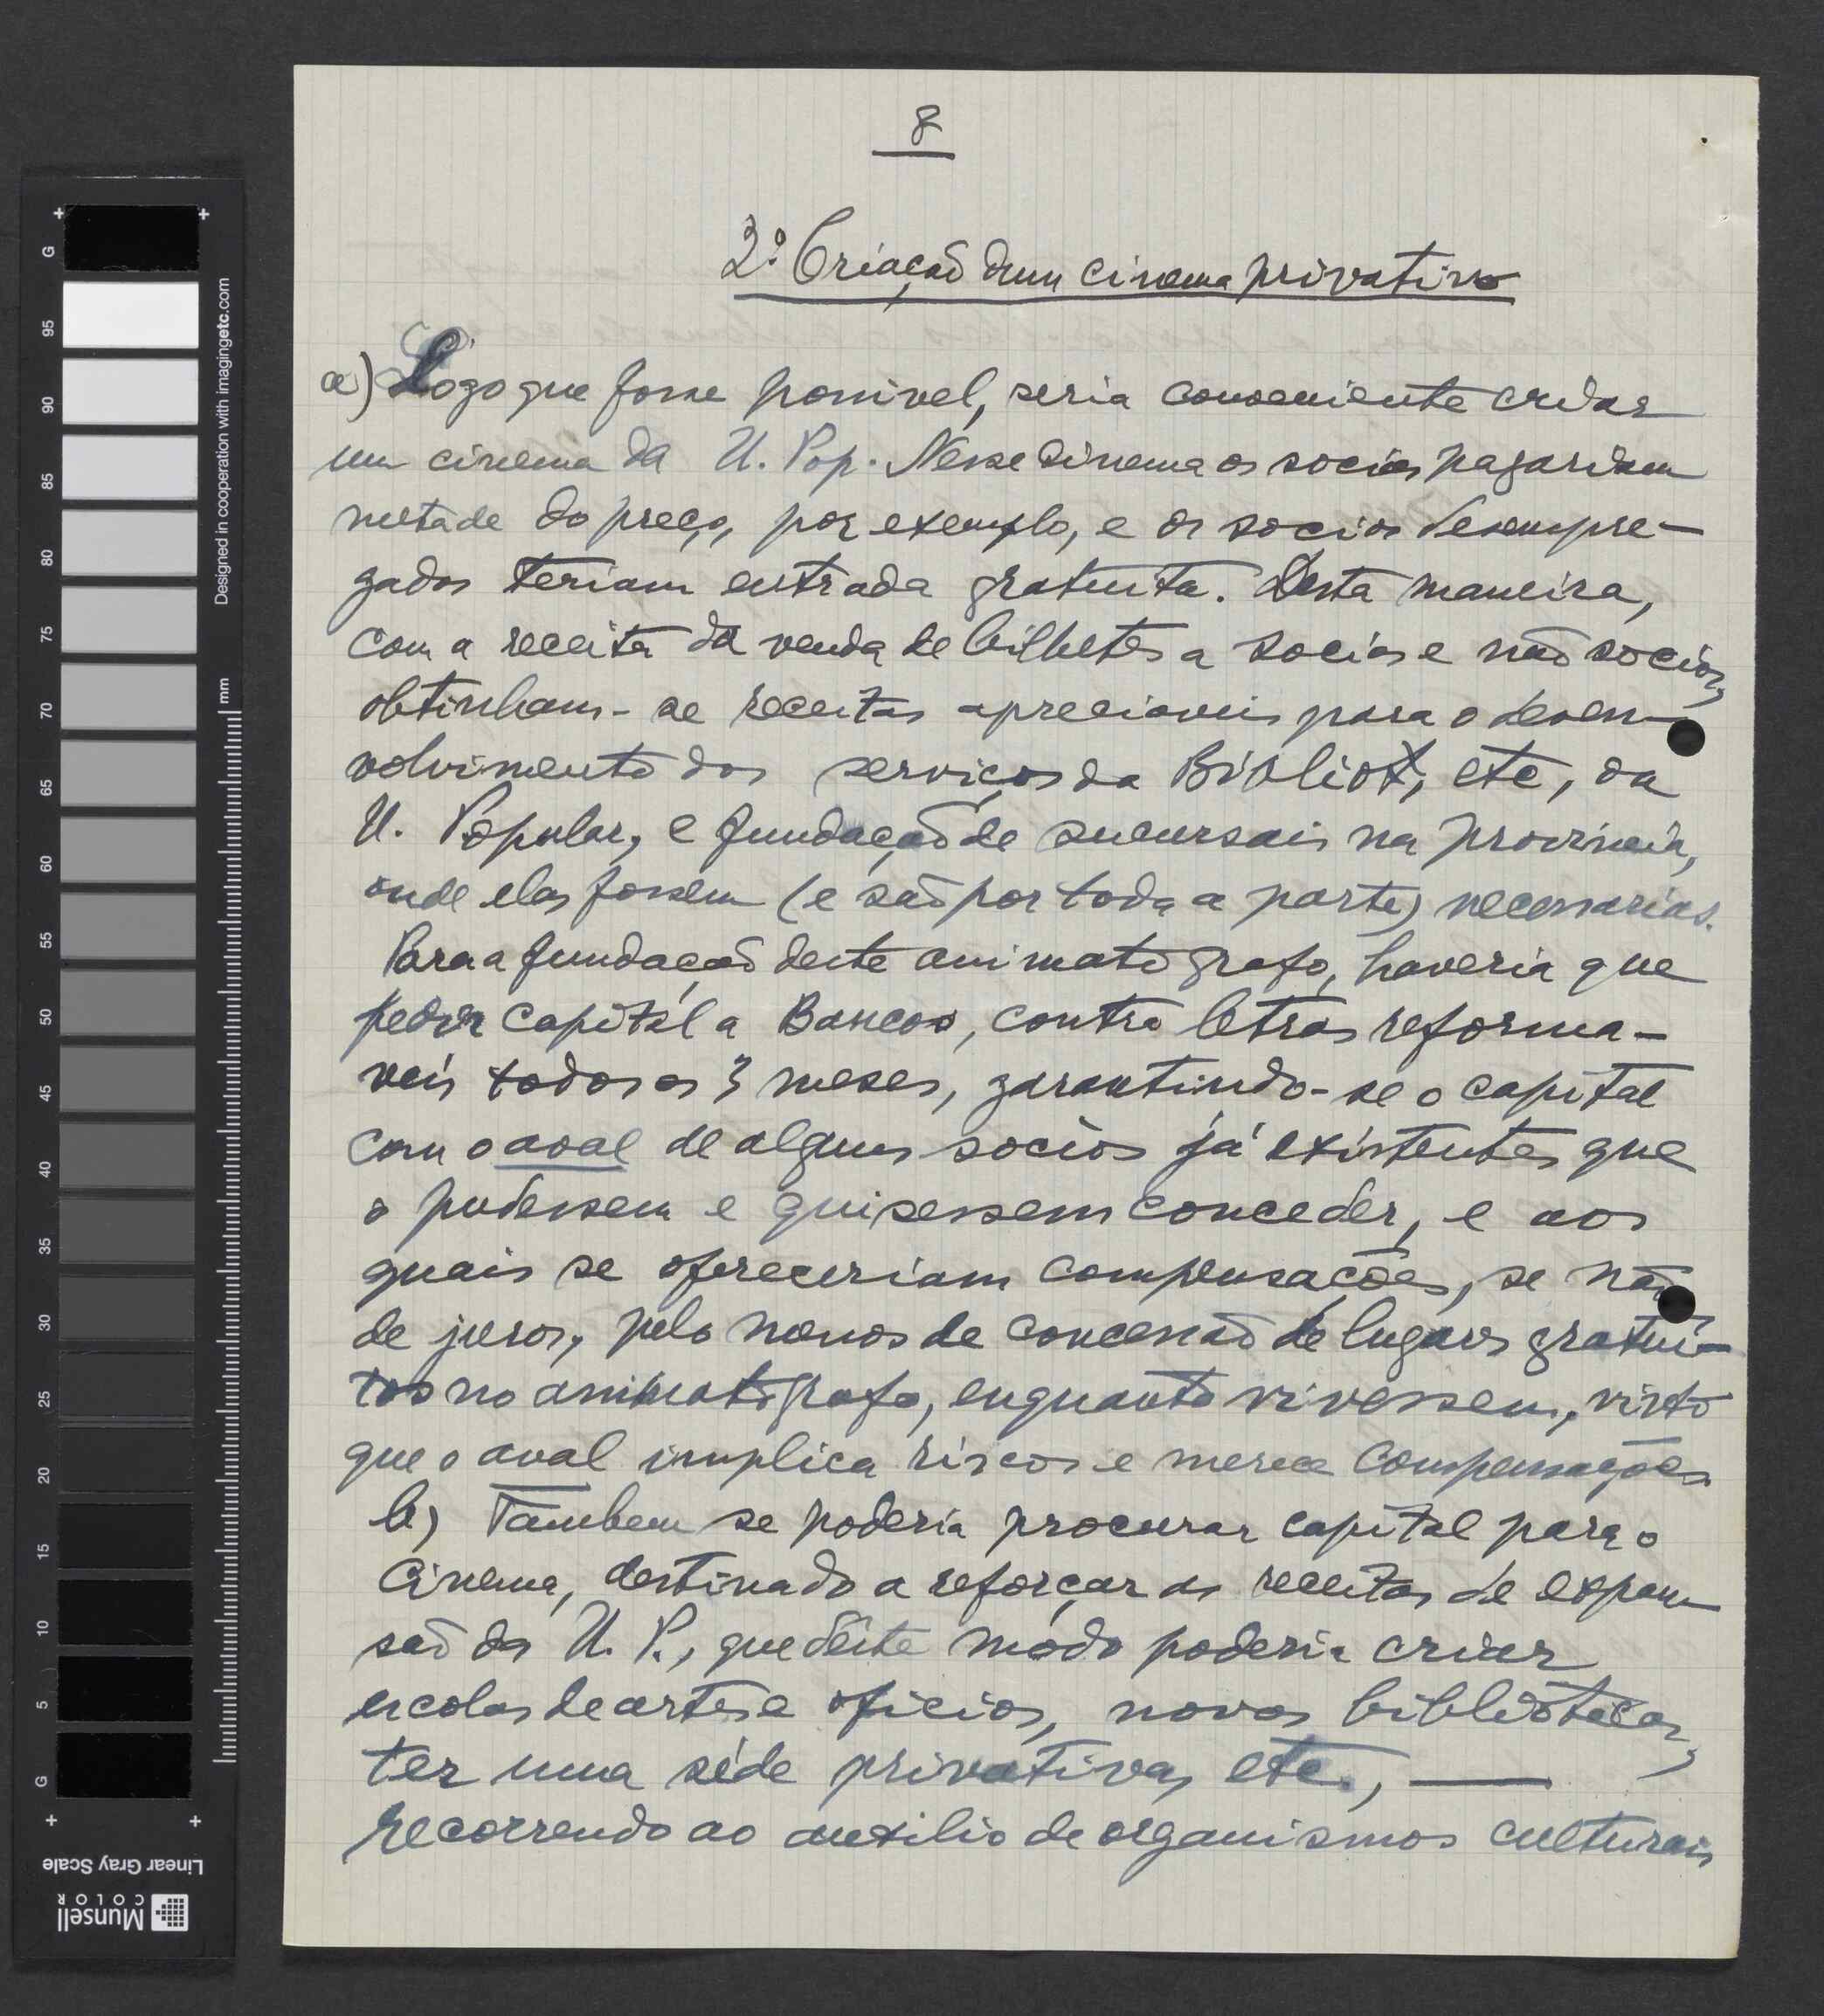 8
2.º Criação dum cinema privativo
a) Logo que fosse possivel, seria conveniente criar
um cinema da U. Pop. Nesse cinema os socios pagariam
metade do preço, por exemplo, e os socios desempre-
gados teriam entrada gratuita. Desta maneira,
com a receita da venda de bilhetes a socios e não socios,
obtinham-se receitas apreciaveis para o desen-
volvimento dos serviços da Bibliot, etc, da
U. Popular, e fundação de sucursais na provincia,
onde elas fossem (e são por toda a parte) necessarias.
Para a fundação deste animatografo, haveria que
pedir capital a Bancos, contra letras reforma-
veis todos os 3 meses, garantindo-se o capital
com o aval de alguns socios já existentes que
o podessem e quisessem conceder, e aos
quais se ofereceriam compensações, se não
de juros, pelo menos de concessão de lugares gratui-
tos no animatografo, enquanto vivessem, visto
que o aval implica riscos e merece compensações
b) Tambem se poderia procurar capital para o
Cinema, destinado a reforçar as receitas de expan-
são da U. P., que dêste módo poderia criar
escolas de artes e oficios, novas bibliotecas,
ter uma séde privativa, etc., —
recorrendo ao auxilio de organismos culturais
G
95
90
85
80
75
70
65
60
55
50
45
40
35
30
25
20
15
10
5
G
mm
Designed in cooperation with imagingetc.com
Linear Gray Scale
Munsell
COLOR